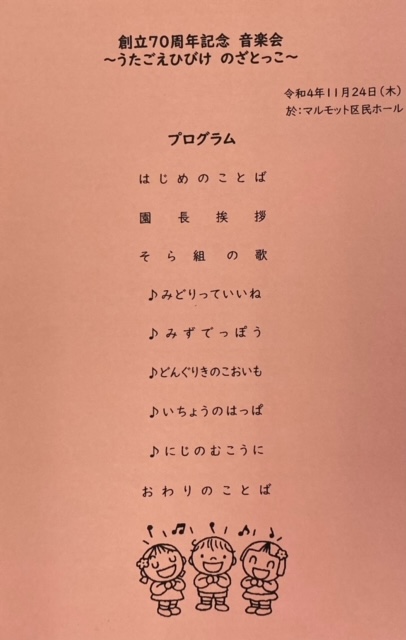 創立70周年記念 音楽会
～うたごえひびけ のざとっこ～
令和4年11月24日(木)
於:マルモット区民ホール
プログラム
はじめのことば
園長挨拶
そら組の歌
♪みどりっていいね
♪みずでっぽう
♪どんぐりきのこおいも
♪いちょうのはっぱ
♪にじのむこうに
おわりのことば